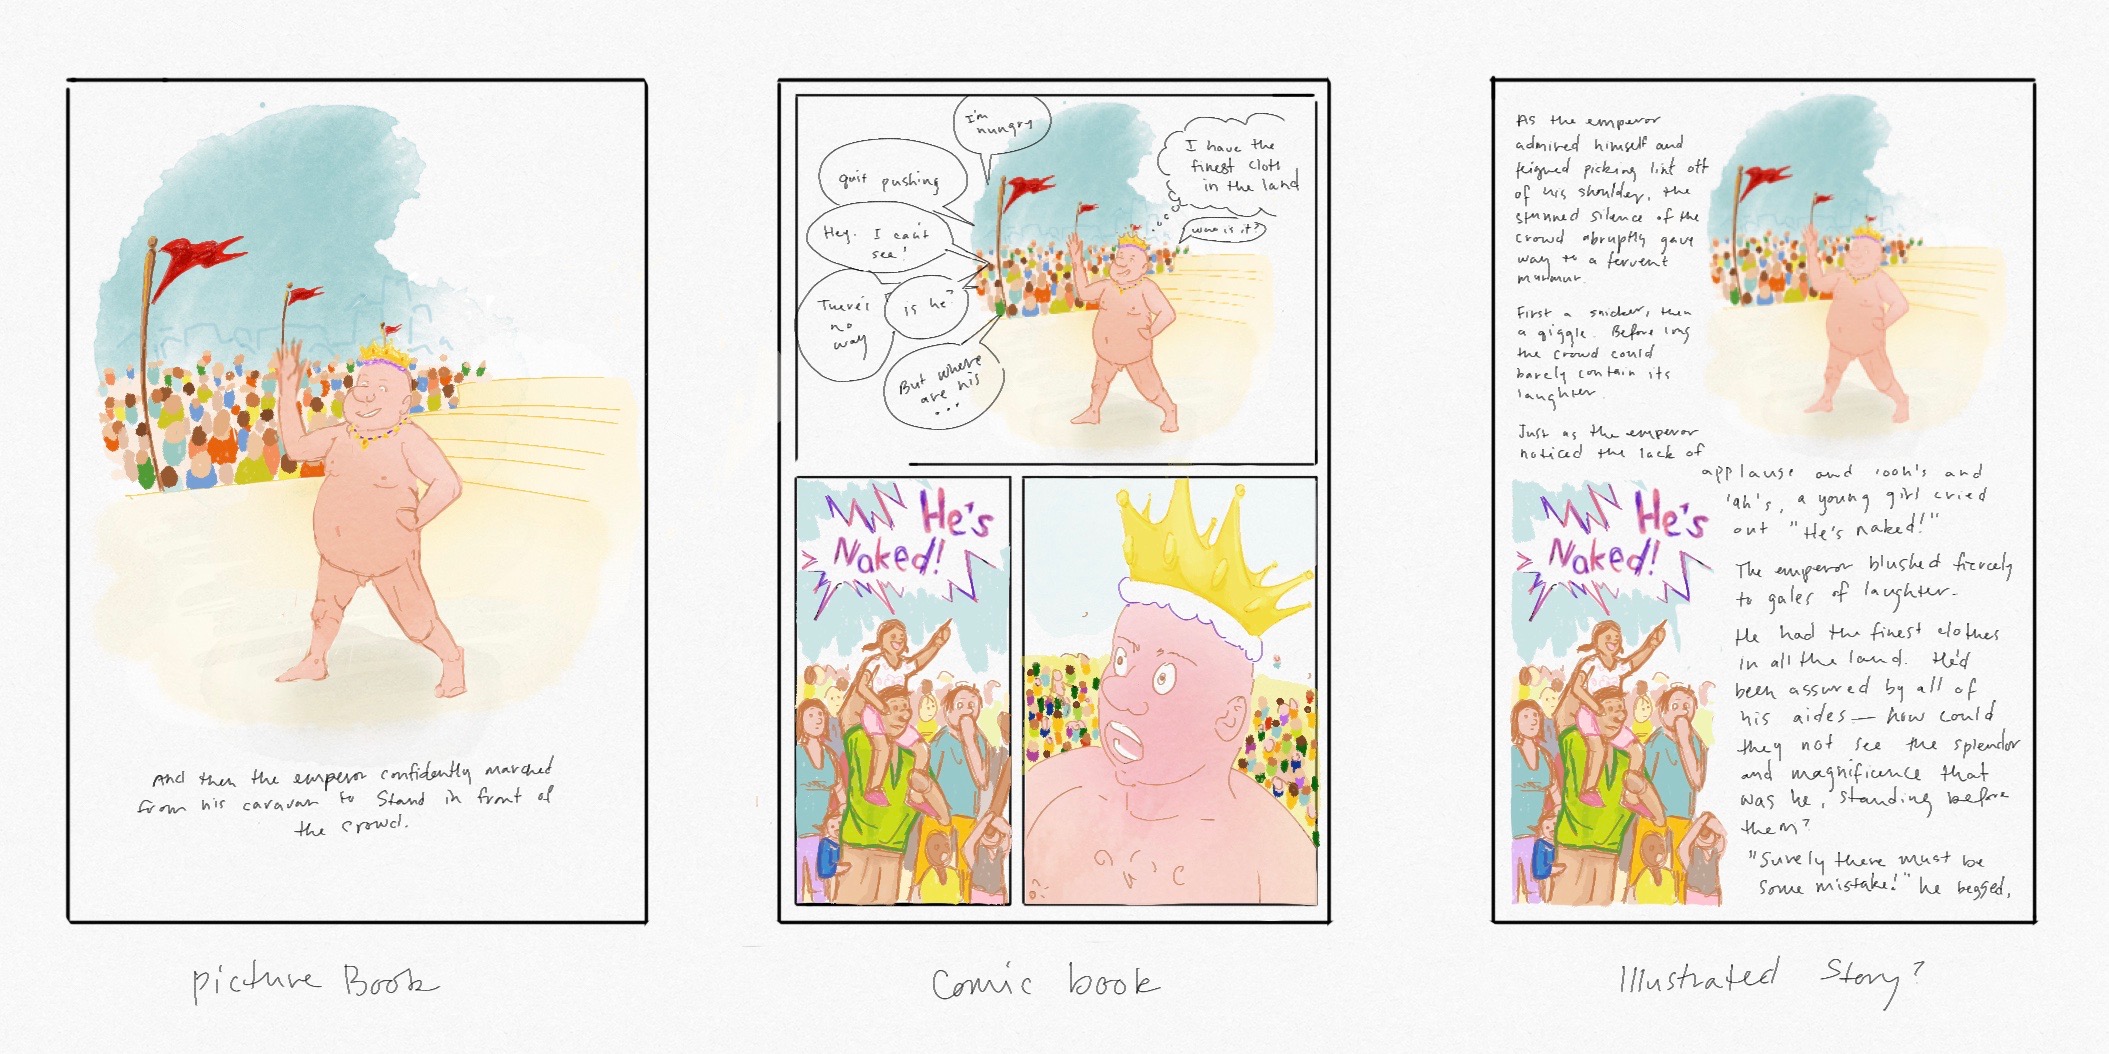 And then the emperor confidently marched
from his caravan to Stand in front of
the crowd.
picture Book
I'm
hungry
quit pushing
Hey. I can't
see!
There's
no
way
is he?
But where
are his
...
I have the
finest cloth
in the land
who is it?
He's
Naked!
Comic book
As the emperor
admired himself and
feigned picking lint off
of his shoulder, the
stunned silence of the
crowd abruptly gave
way to a fervent
murmur.
First a snicker, then
a giggle. Before long
the crowd could
barely contain its
laughter.
Just as the emperor
noticed the lack of
applause and 'ooh's and
'ah's, a young girl cried
out "He's naked!"
He's
Naked!
The emperor blushed fiercely
to gales of laughter.
He had the finest clothes
in all the land. He'd
been assured by all of
his aides — how could
they not see the splendor
and magnificence that
was he, standing before
them?
"Surely there must be
some mistake!" he begged,
Illustrated Story?